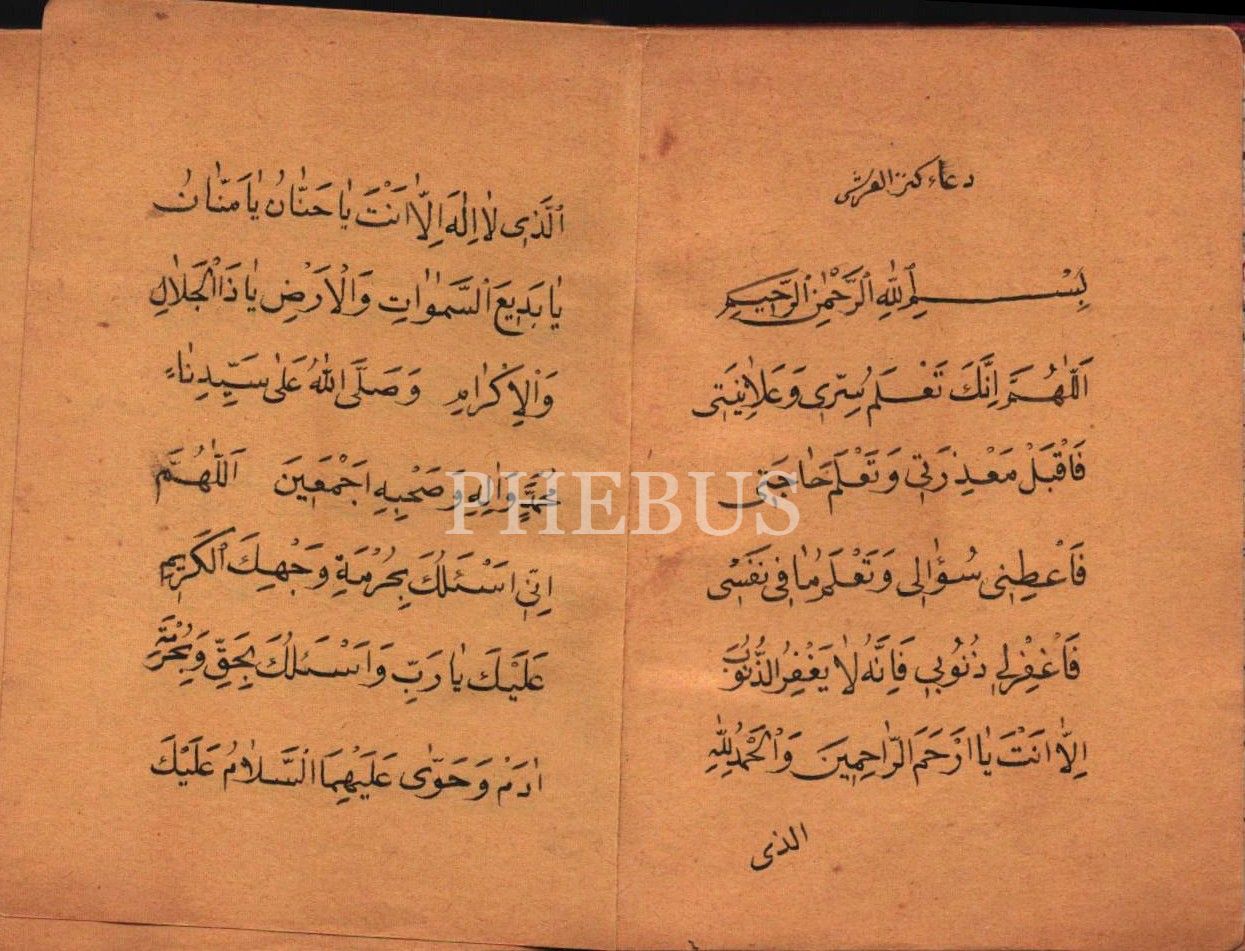 دعاء كنز العرش
بِسْــــمِ ٱللّٰهِ ٱلرَّحْمٰنِ ٱلرَّحِيمِ
اَللّٰهُمَّ اِنَّكَ تَعْلَمُ سِرّ۪ي وَعَلَانِيَت۪ي
فَاقْبَلْ مَعْذِرَت۪ي وَتَعْلَمُ حَاجَت۪ي
فَاَعْطِن۪ي سُؤَال۪ي وَتَعْلَمُ مَا ف۪ي نَفْس۪ي
فَاغْفِرْل۪ي ذُنُوب۪ي فَاِنَّهُ لَا يَغْفِرُ الذُّنُوبَ
اِلَّا اَنْتَ يَا اَرْحَمَ الرَّاحِم۪ينَ وَالْحَمْدُ لِلّٰهِ
الذى
اَلَّذ۪ي لَا اِلٰهَ اِلَّا اَنْتَ يَا حَنَّانُ يَا مَنَّانُ
يَا بَد۪يعَ السَّمٰوَاتِ وَالْاَرْضِ يَا ذَا الْجَلَالِ
وَالْاِكْرَامِ وَصَلَّى اللّٰهُ عَلٰى سَيِّدِنَا
مُحَمَّدٍ وَاٰلِه۪ وَصَحْبِه۪ اَجْمَع۪ينَ اَللّٰهُمَّ
اِنّ۪ي اَسْئَلُكَ بِحُرْمَةِ وَجْهِكَ الْكَر۪يمِ
عَلَيْكَ يَا رَبِّ وَاَسْئَلُكَ بِحَقِّ وَبِحُرْمَةِ
اٰدَمْ وَحَوّٰى عَلَيْهِمَا السَّلَامُ عَلَيْكَ
PHEBUS